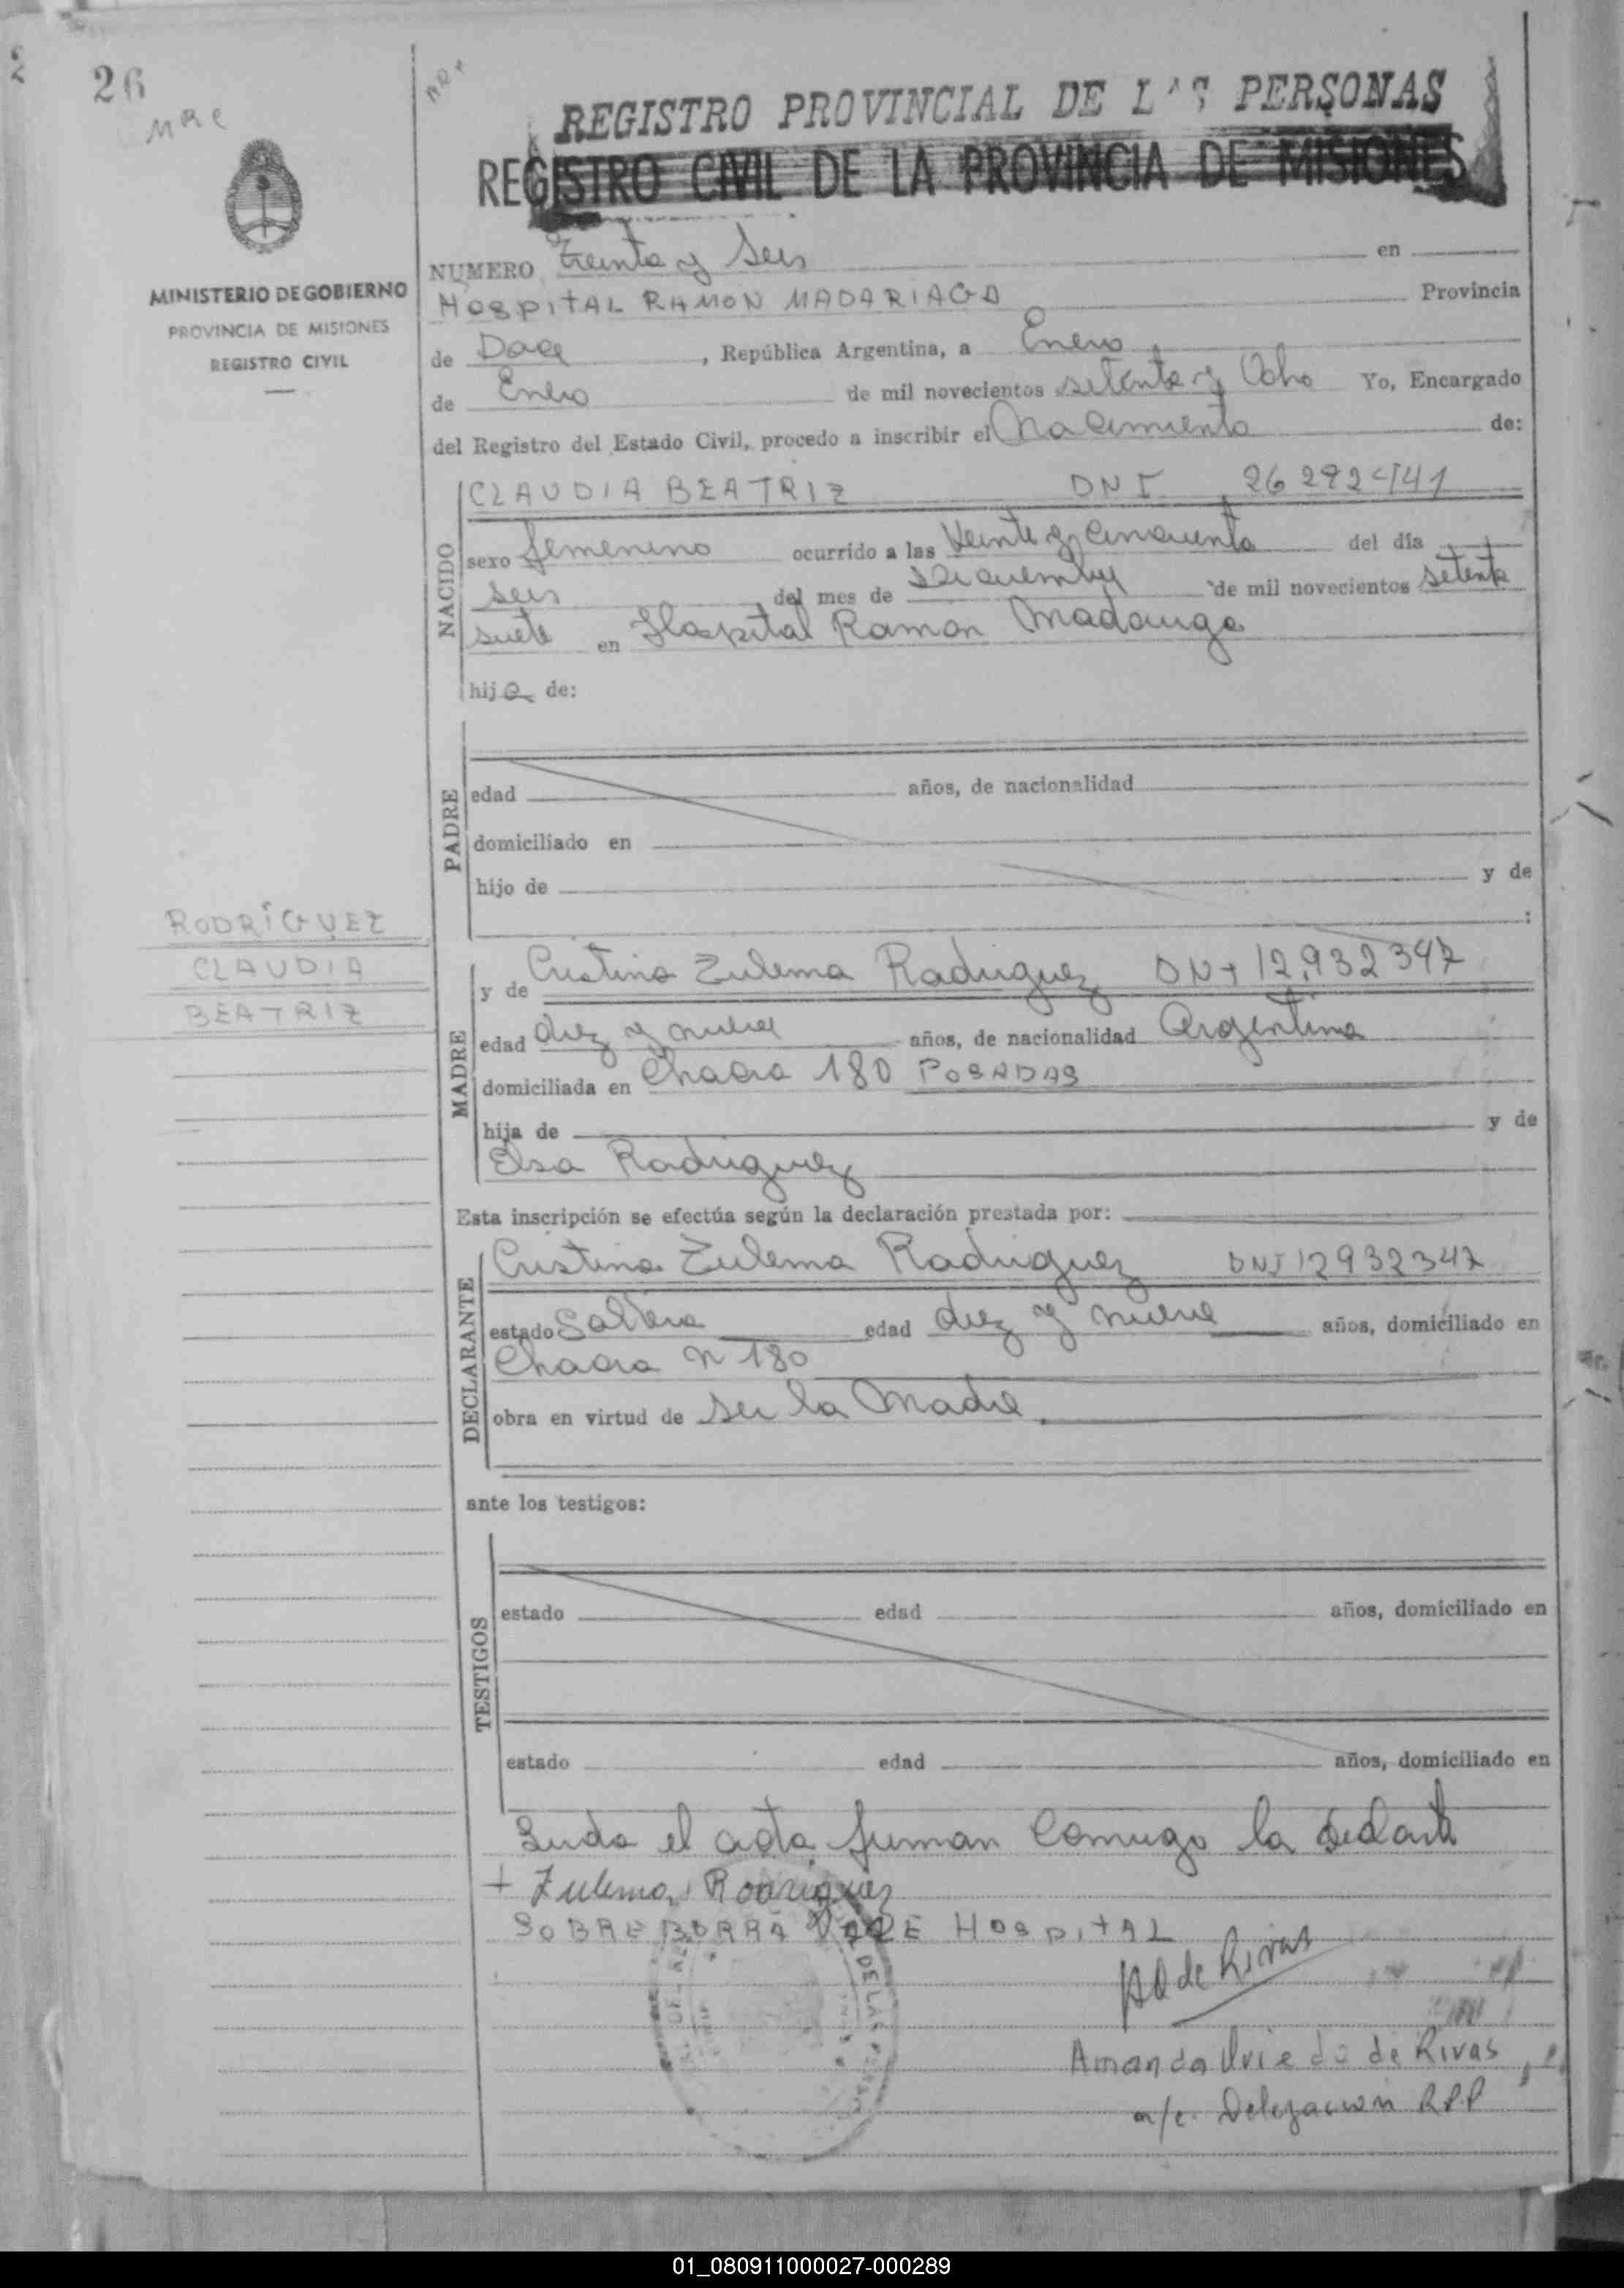 26
MRe
REGISTRO PROVINCIAL DE LAS PERSONAS
REGISTRO CIVIL DE LA PROVINCIA DE MISIONES
MINISTERIO DE GOBIERNO
PROVINCIA DE MISIONES
REGISTRO CIVIL
NUMERO Treinta y Seis en
HOSPITAL RAMON MADARIAGA Provincia
de Doce , República Argentina, a Enero
de Enero de mil novecientos setenta y Ocho Yo, Encargado
del Registro del Estado Civil, procedo a inscribir el Nacimiento de:
NACIDO
CLAUDIA BEATRIZ DNI 26292441
sexo femenino ocurrido a las Veinte y cincuenta del día
seis del mes de Diciembre de mil novecientos setenta
siete en Hospital Ramon Madariaga
hija de:
PADRE
edad años, de nacionalidad
domiciliado en
hijo de y de
:
RODRÍGUEZ
CLAUDIA
BEATRIZ
MADRE
y de Cristina Zulema Rodriguez DNI 12,932347
edad diez y nueve años, de nacionalidad Argentina
domiciliada en Chacra 180 POSADAS
hija de y de
Elsa Rodriguez
Esta inscripción se efectúa según la declaración prestada por:
DECLARANTE
Cristina Zulema Rodriguez DNI 12932347
estado Soltera edad diez y nueve años, domiciliado en
Chacra N 180
obra en virtud de ser la Madre
ante los testigos:
TESTIGOS
estado edad años, domiciliado en
estado edad años, domiciliado en
el acta firman Comigo la
+ Zulema Rodriguez
SOBREBORRA VALE HOSPITAL
AO de Rivas
Amanda Oviedo de Rivas
a/c. Delegacion RPP
01_080911000027-000289